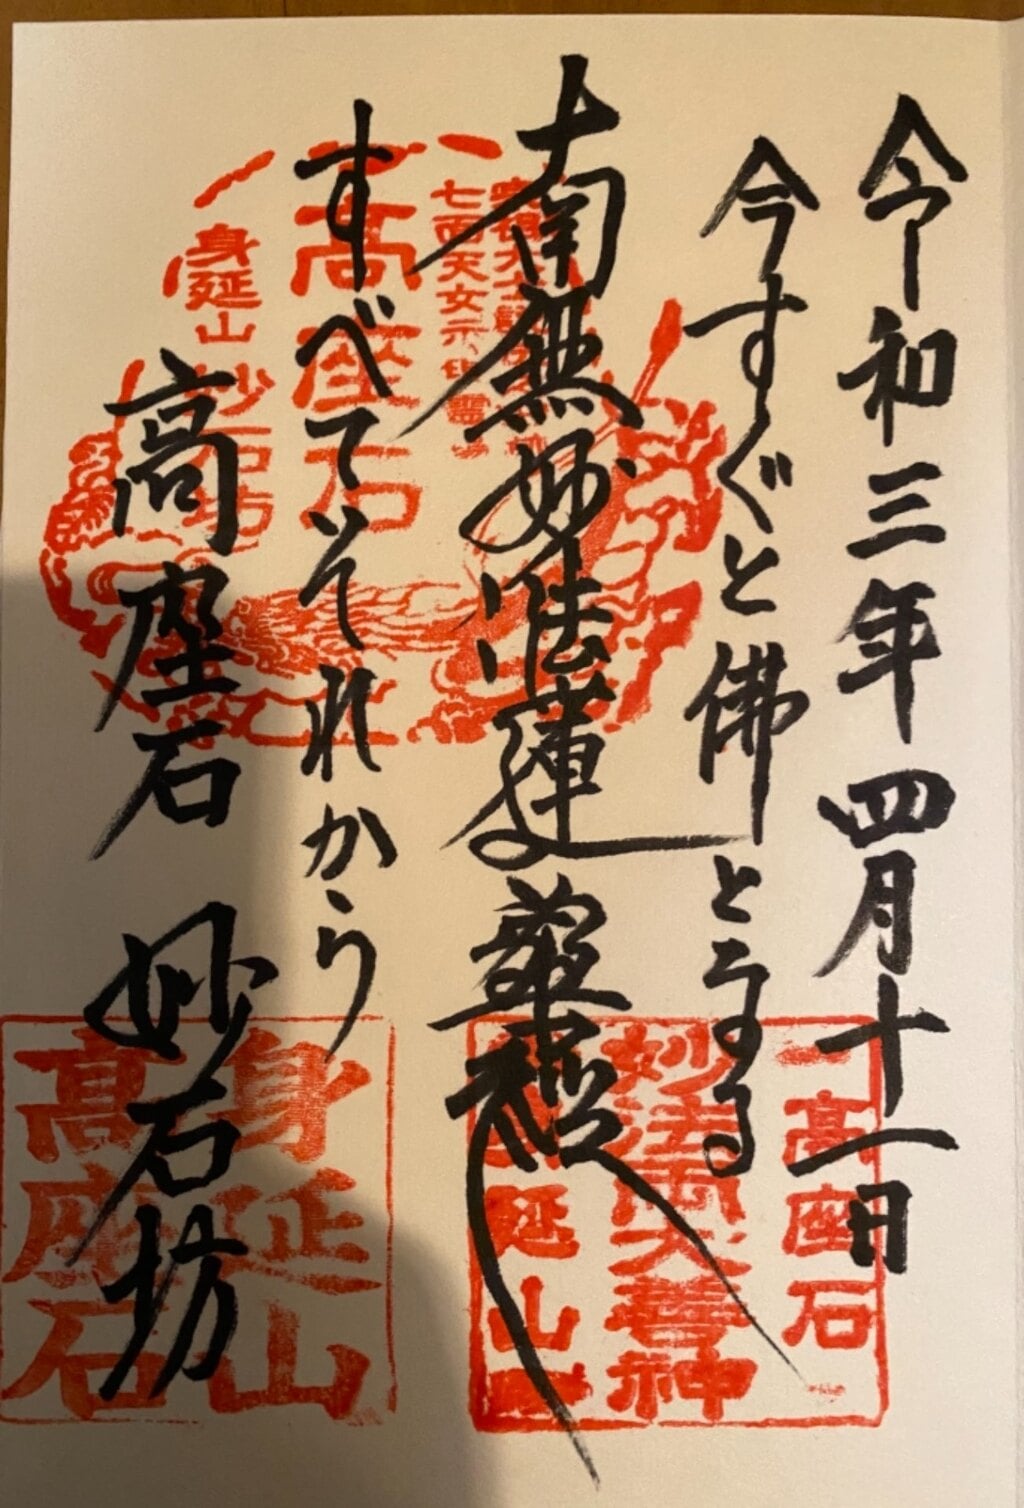 令和三年四月十一日
今すぐと佛となる
南無妙法蓮華経
すべてそれから
高座石 妙石坊
七面天女示現霊
高座石
身延山
妙石坊
高座石
妙法両大善神
延山
身延山
高座石